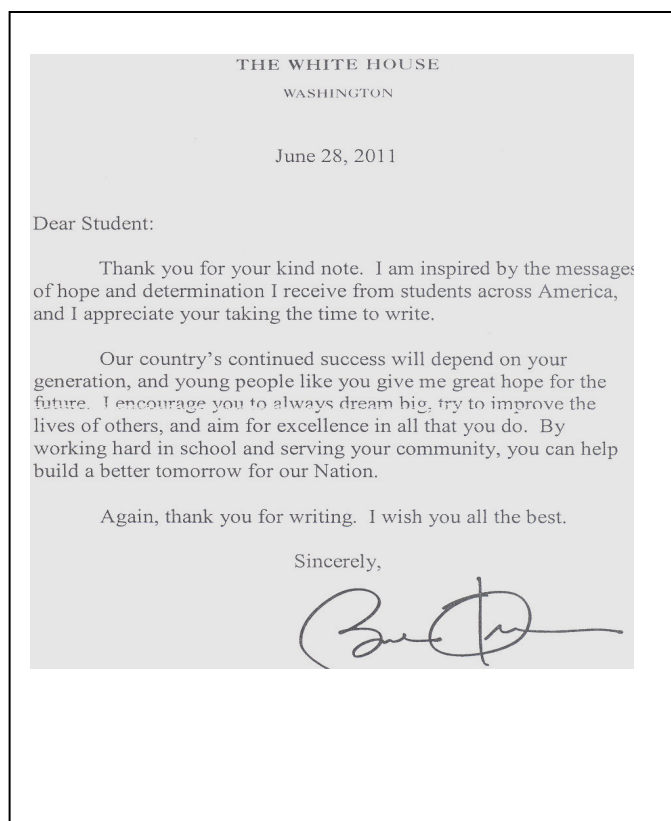 THE WHITE HOUSE
WASHINGTON
June 28, 2011
Dear Student:
Thank you for your kind note. I am inspired by the messages
of hope and determination I receive from students across America,
and I appreciate your taking the time to write.
Our country's continued success will depend on your
generation, and young people like you give me great hope for the
future. I encourage you to always dream big, try to improve the
lives of others, and aim for excellence in all that you do. By
working hard in school and serving your community, you can help
build a better tomorrow for our Nation.
Again, thank you for writing. I wish you all the best.
Sincerely,